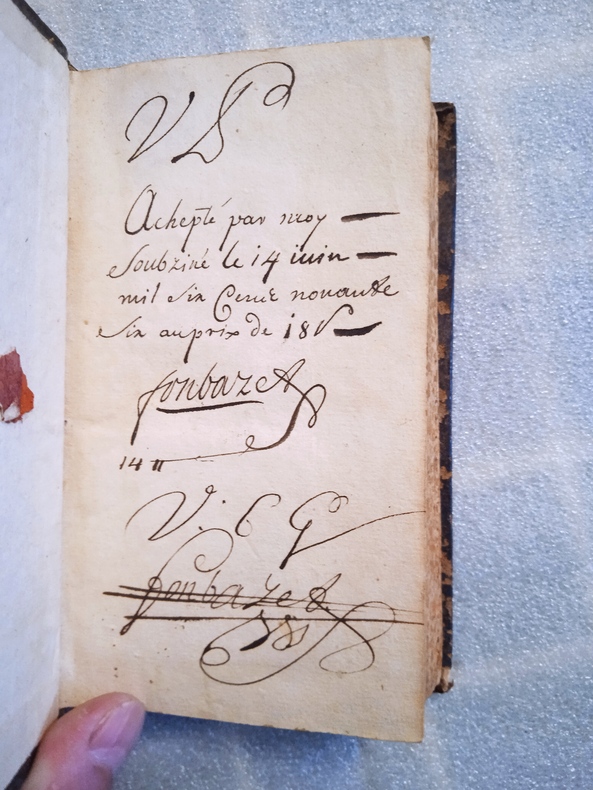 Achepté par moy
Soubziné le 14 iuin
mil six Cenct nonante
Six au prix de 18 s
fonbazet
14
V. C
fonbazet